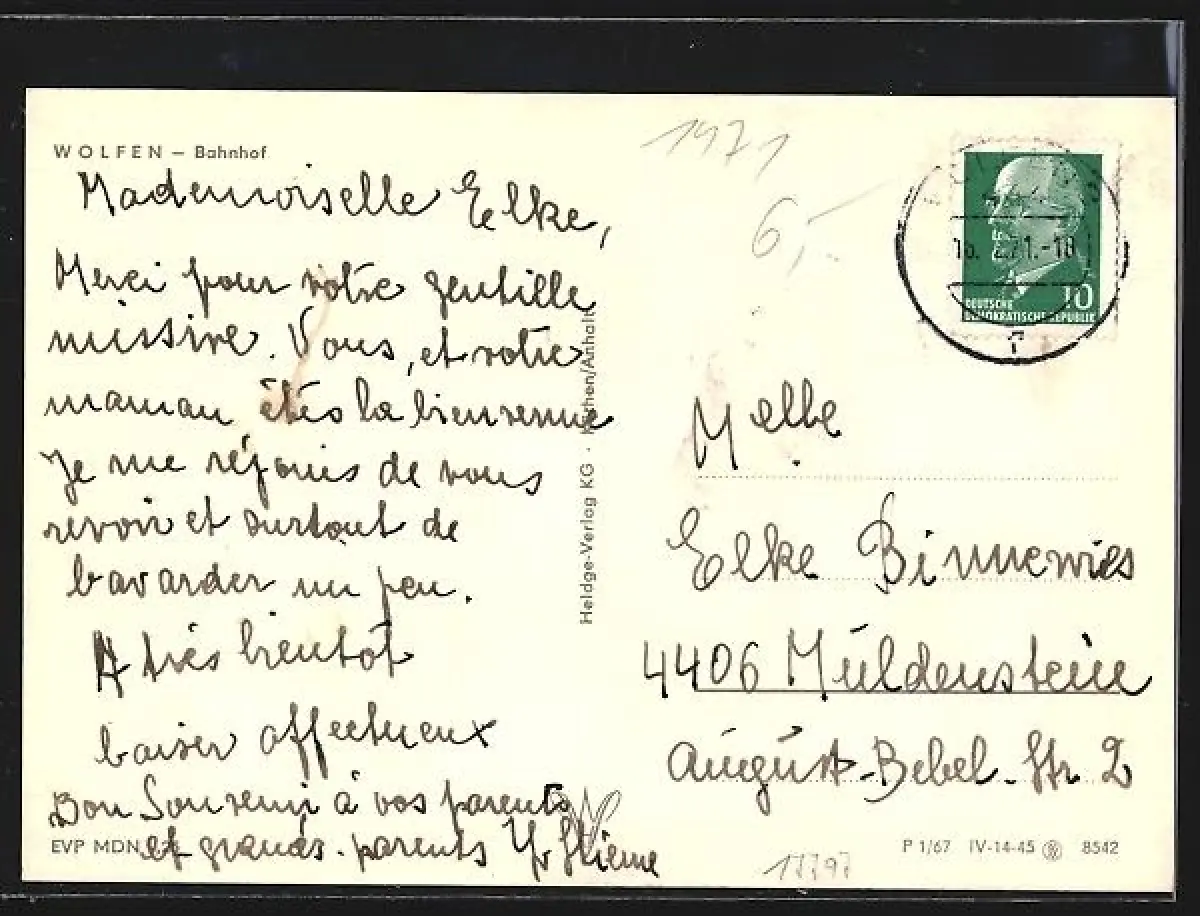 WOLFEN – Bahnhof
Mademoiselle Elke,
Merci pour votre gentille
missive. Vous, et votre
maman êtes la bienvenue
Je me réjouis de vous
revoir et surtout de
bavarder un peu.
A très bientôt
baiser affectueux
Bon Souvenir à vos parents
et grands-parents
EVP MDN
Heldge-Verlag KG · Köthen/Anhalt
1971
6,-
16. 2.71.-18
10
DEUTSCHE
DEMOKRATISCHE REPUBLIK
Melle
Elke Binnewies
4406 Müldenstein
August-Bebel-Str 2
P 1/67 IV-14-45 8542